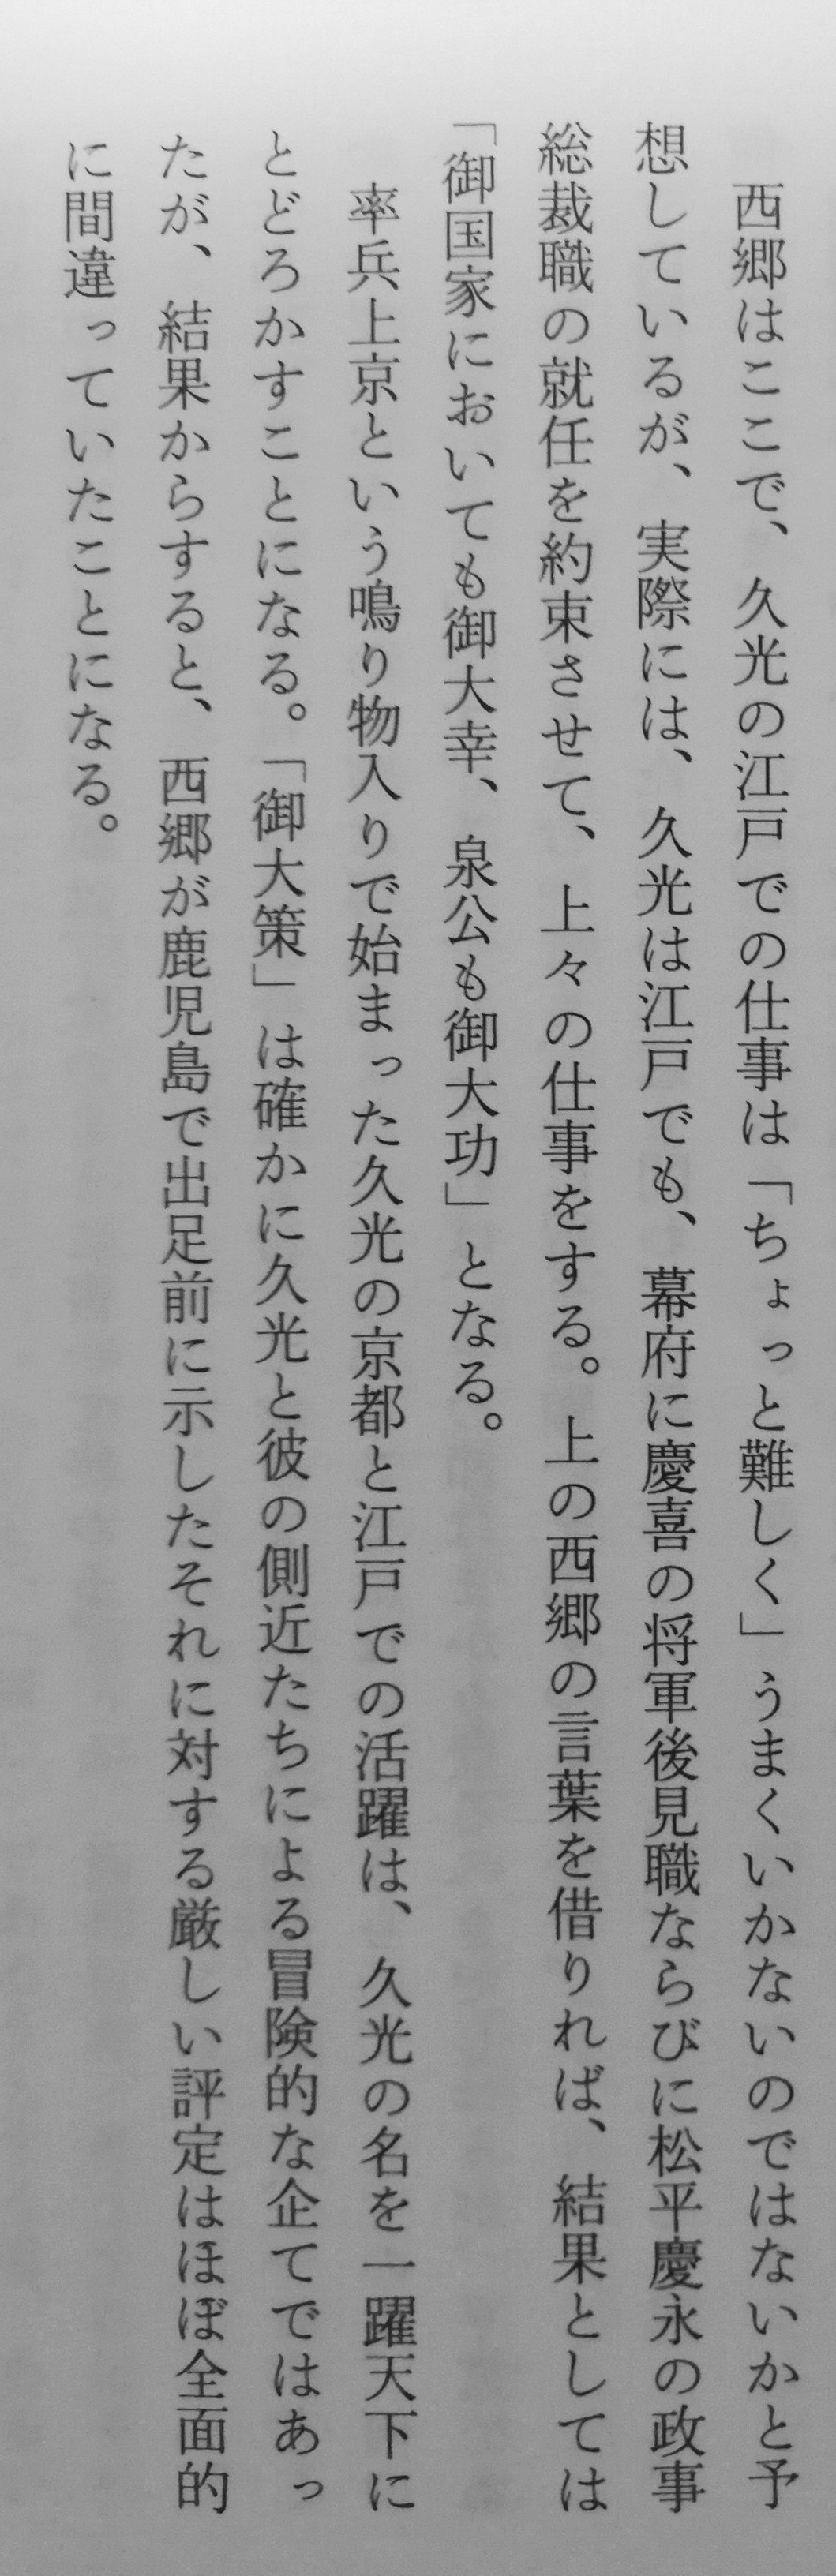 西郷はここで、久光の江戸での仕事は「ちょっと難しく」うまくいかないのではないかと予
想しているが、実際には、久光は江戸でも、幕府に慶喜の将軍後見職ならびに松平慶永の政事
総裁職の就任を約束させて、上々の仕事をする。上の西郷の言葉を借りれば、結果としては
「御国家においても御大幸、泉公も御大功」となる。
率兵上京という鳴り物入りで始まった久光の京都と江戸での活躍は、久光の名を一躍天下に
とどろかすことになる。「御大策」は確かに久光と彼の側近たちによる冒険的な企てではあっ
たが、結果からすると、西郷が鹿児島で出足前に示したそれに対する厳しい評定はほぼ全面的
に間違っていたことになる。